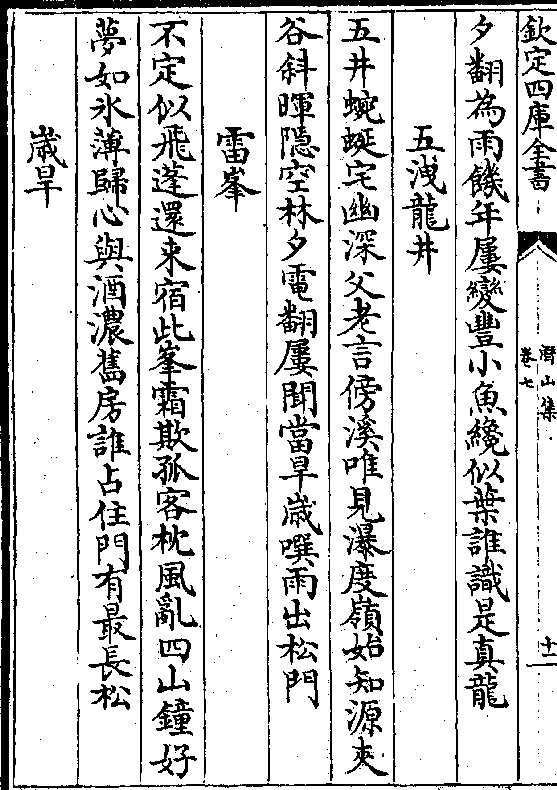 欽定四庫全書
潛山集
卷七
十二
夕翻為雨饑年屢變豐小魚纔似葉誰識是真龍
五洩龍井
五井蜿蜒宅幽深父老言傍溪唯見瀑度嶺始知源夾
谷斜暉隱空林夕電翻屢聞當旱歳噀雨出松門
雷峯
不定似飛蓬還来宿此峯霜欺孤客枕風亂四山鐘好
夢如氷薄歸心與酒濃舊房誰占住門有最長松
歳旱